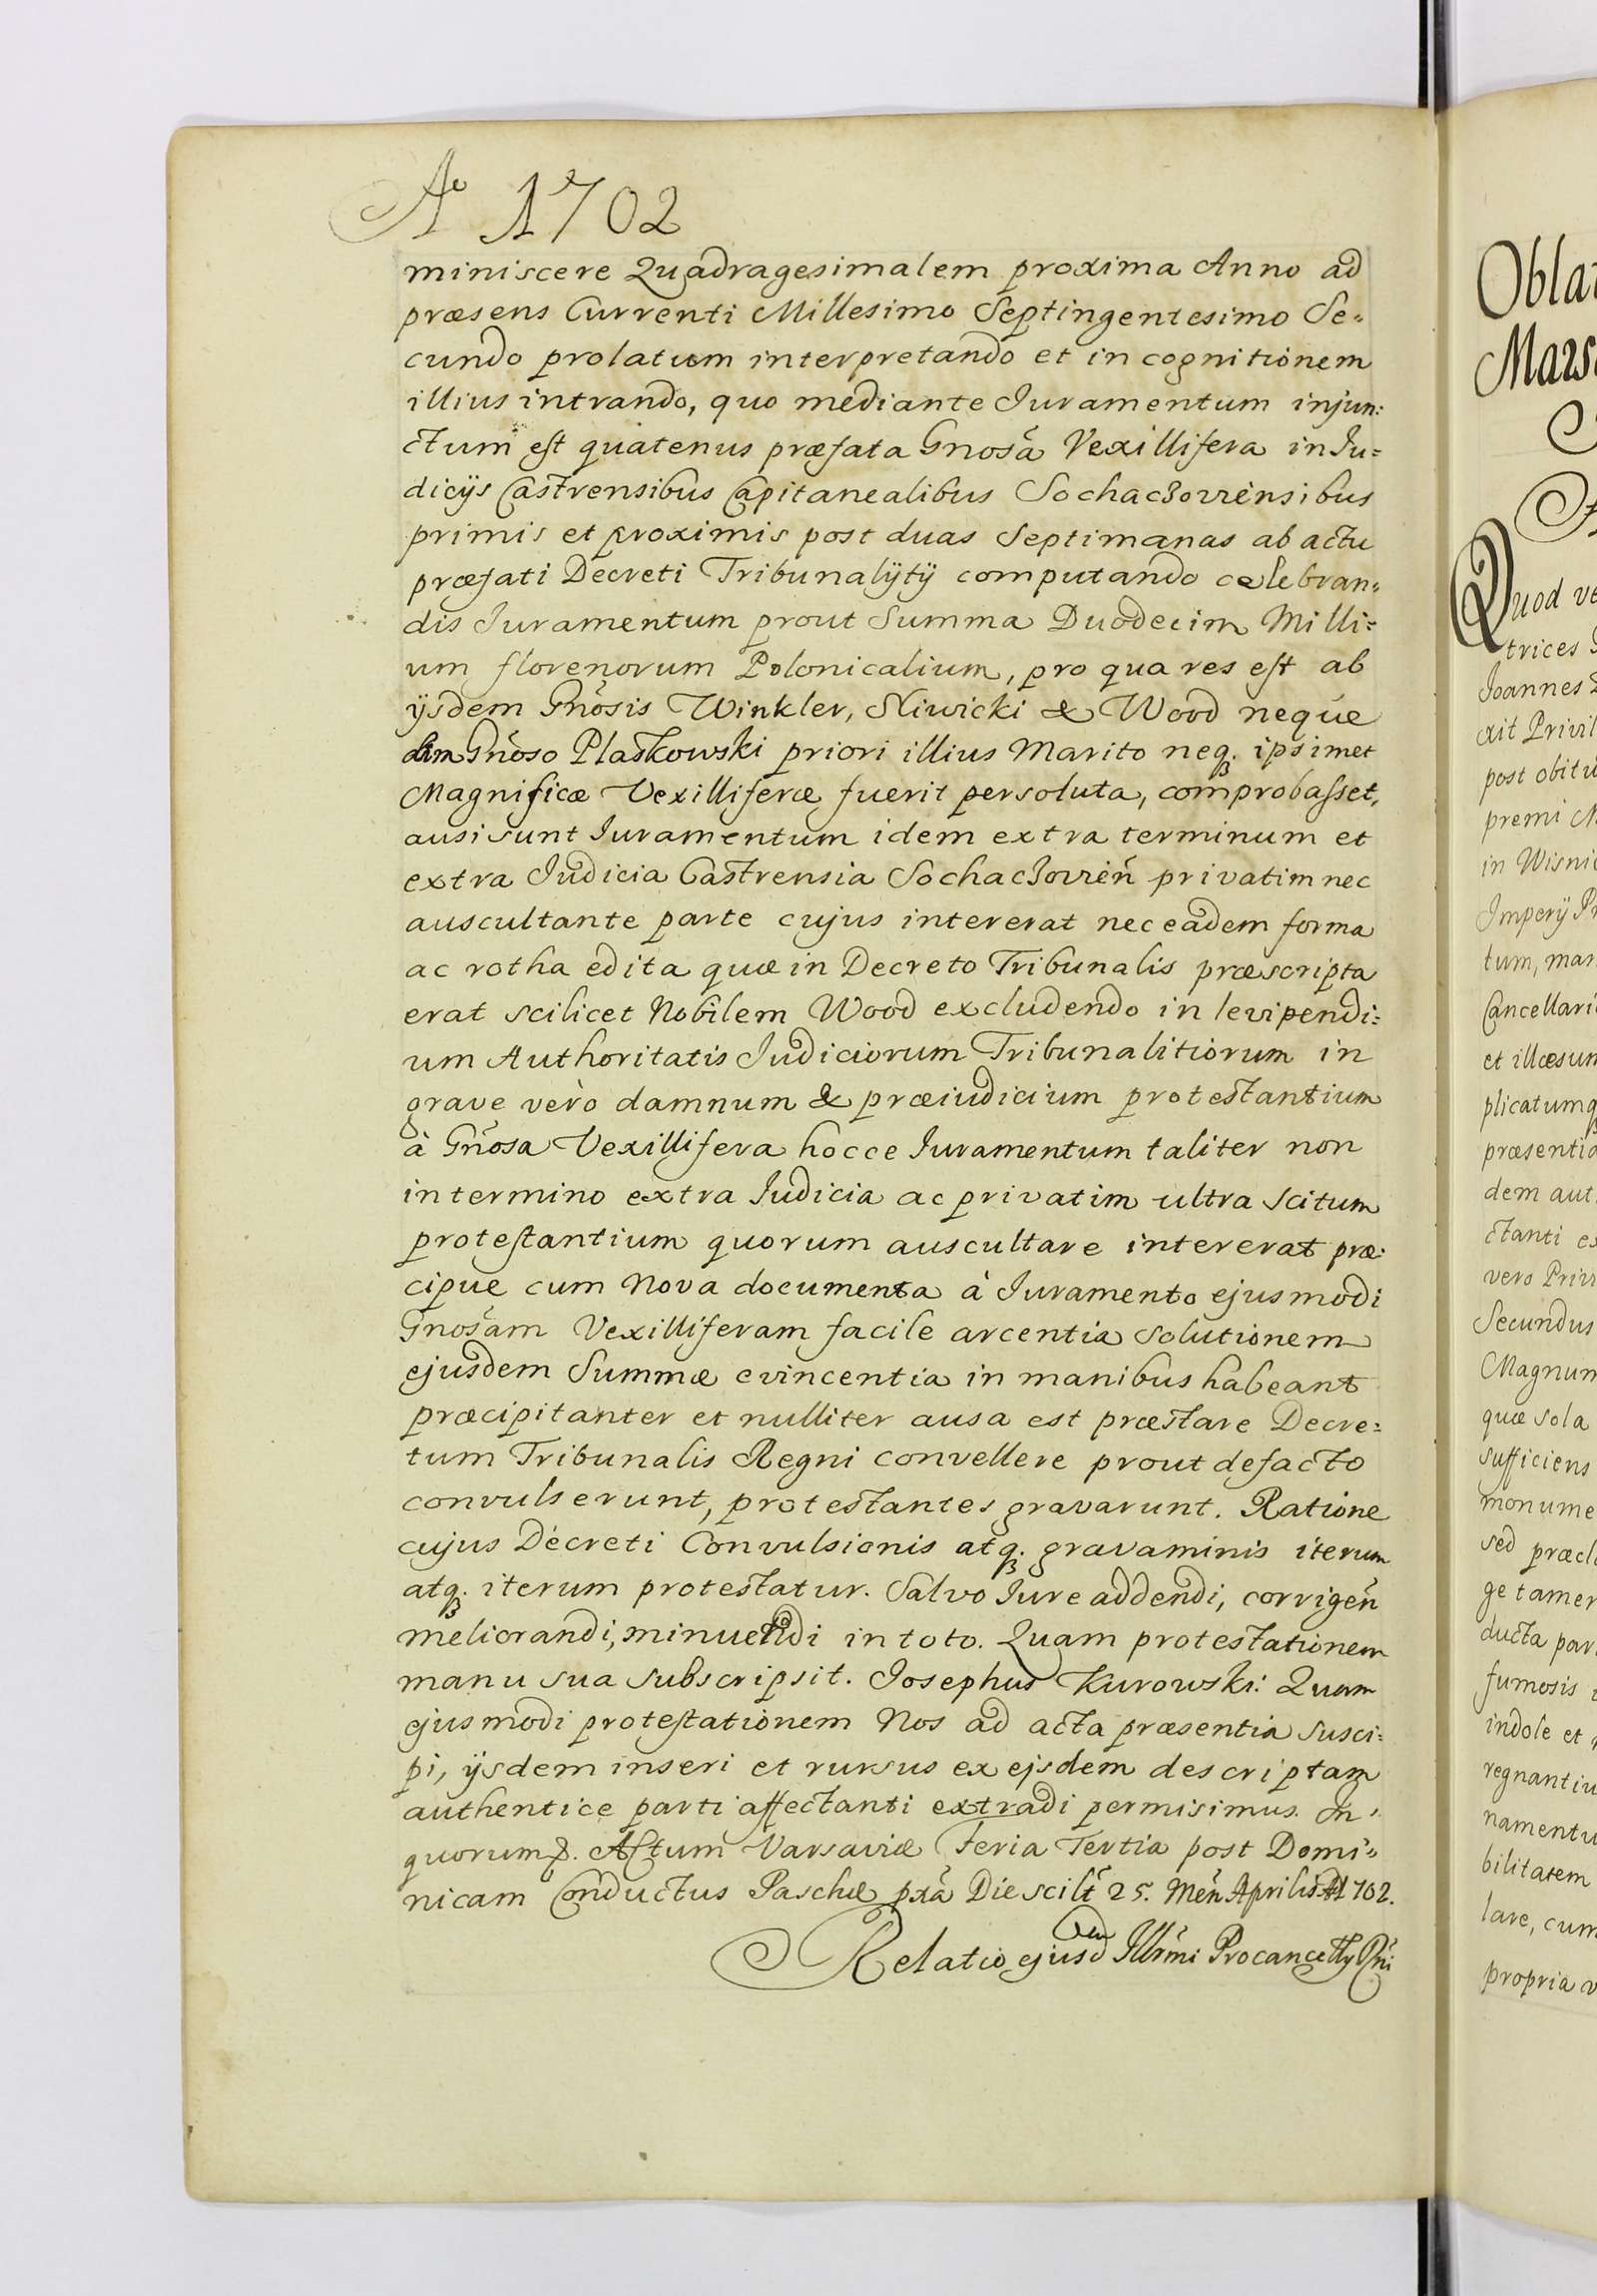 Aº 1702
miniscere Quadragesimalem proxima Anno ad
præsens Currenti Millesimo Septingentesimo Se=
cundo prolatum interpretando et in cognitionem
illius intrando, quo mediante Juramentum injun:
ctum est quatenus præfata Gnosa Vexillifera in Ju=
dicijs Castrensibus Capitanealibus Sochaczoviensibus
primis et proximis post duas Septimanas ab actu
præfati Decreti Tribunalÿtÿ computando celebran=
dis Juramentum prout Summa Duodecim Milli=
um florenorum Polonicalium, pro qua res est ab
ijsdem Gnosis Winkler, Sliwicki & Wood neque
olim Gnoso Plaskowski priori illius Marito neq. ipsimet
Magnificæ Vexilliferæ fuerit persoluta, comprobasset,
ausi sunt Juramentum idem extra terminum et
extra Judicia Castrensia Sochaczovien privatim nec
auscultante parte cujus intererat nec eadem forma
ac rotha edita quæ in Decreto Tribunalis præscripta
erat scilicet Nobilem Wood excludendo in levipendi=
um Authoritatis Judiciorum Tribunalitiorum in
grave verò damnum & præiudicium protestantium
à Gnosa Vexillifera hocce Juramentum taliter non
in termino extra Judicia ac privatim ultra scitum
protestantium quorum auscultare intererat præ:
cipue cum Nova documenta à Juramento ejusmodi
Gnosam Vexilliferam facile arcentia solutionem
ejusdem Summæ evincentia in manibus habeant
præcipitanter et nulliter ausa est præstare Decre=
tum Tribunalis Regni convellere prout defacto
convulserunt, protestantes gravarunt. Ratione
cujus Decreti Convulsionis atq. gravaminis iterum
atq. iterum protestatur. Salvo Jure addendi, corrigen
meliorandi, minuendi in toto. Quam protestationem
manu sua subscripsit. Josephus Kurowski: Quam
ejusmodi protestationem Nos ad acta præsentia susci=
pi, ijsdem inseri et rursus ex ejsdem descriptam
authentice parti affectanti extradi permisimus. In
quorum &. Actum Varsaviæ Feria Tertia post Domi=
nicam Conductus Paschæ pxa Die scilt 25. Men Aprilis A 1702.
Relatio ejusdem Illsmi Procancellÿ Rni
Oblat
Mars
Quod ve
trices
Joannes
xit Privil
post obitu
premi M
in Wisnic
Imperij Pr
tum, man
Cancellari
et illæsum
plicatumq
præsentia
dem aut
ctanti ex
vero Privi
Secundus
Magnum
quæ sola
sufficiens
monume
sed præcl
ge tamen
ducta par
fumosis
indole et
regnantiu
namentu
bilitatem
lare, cum
propria v